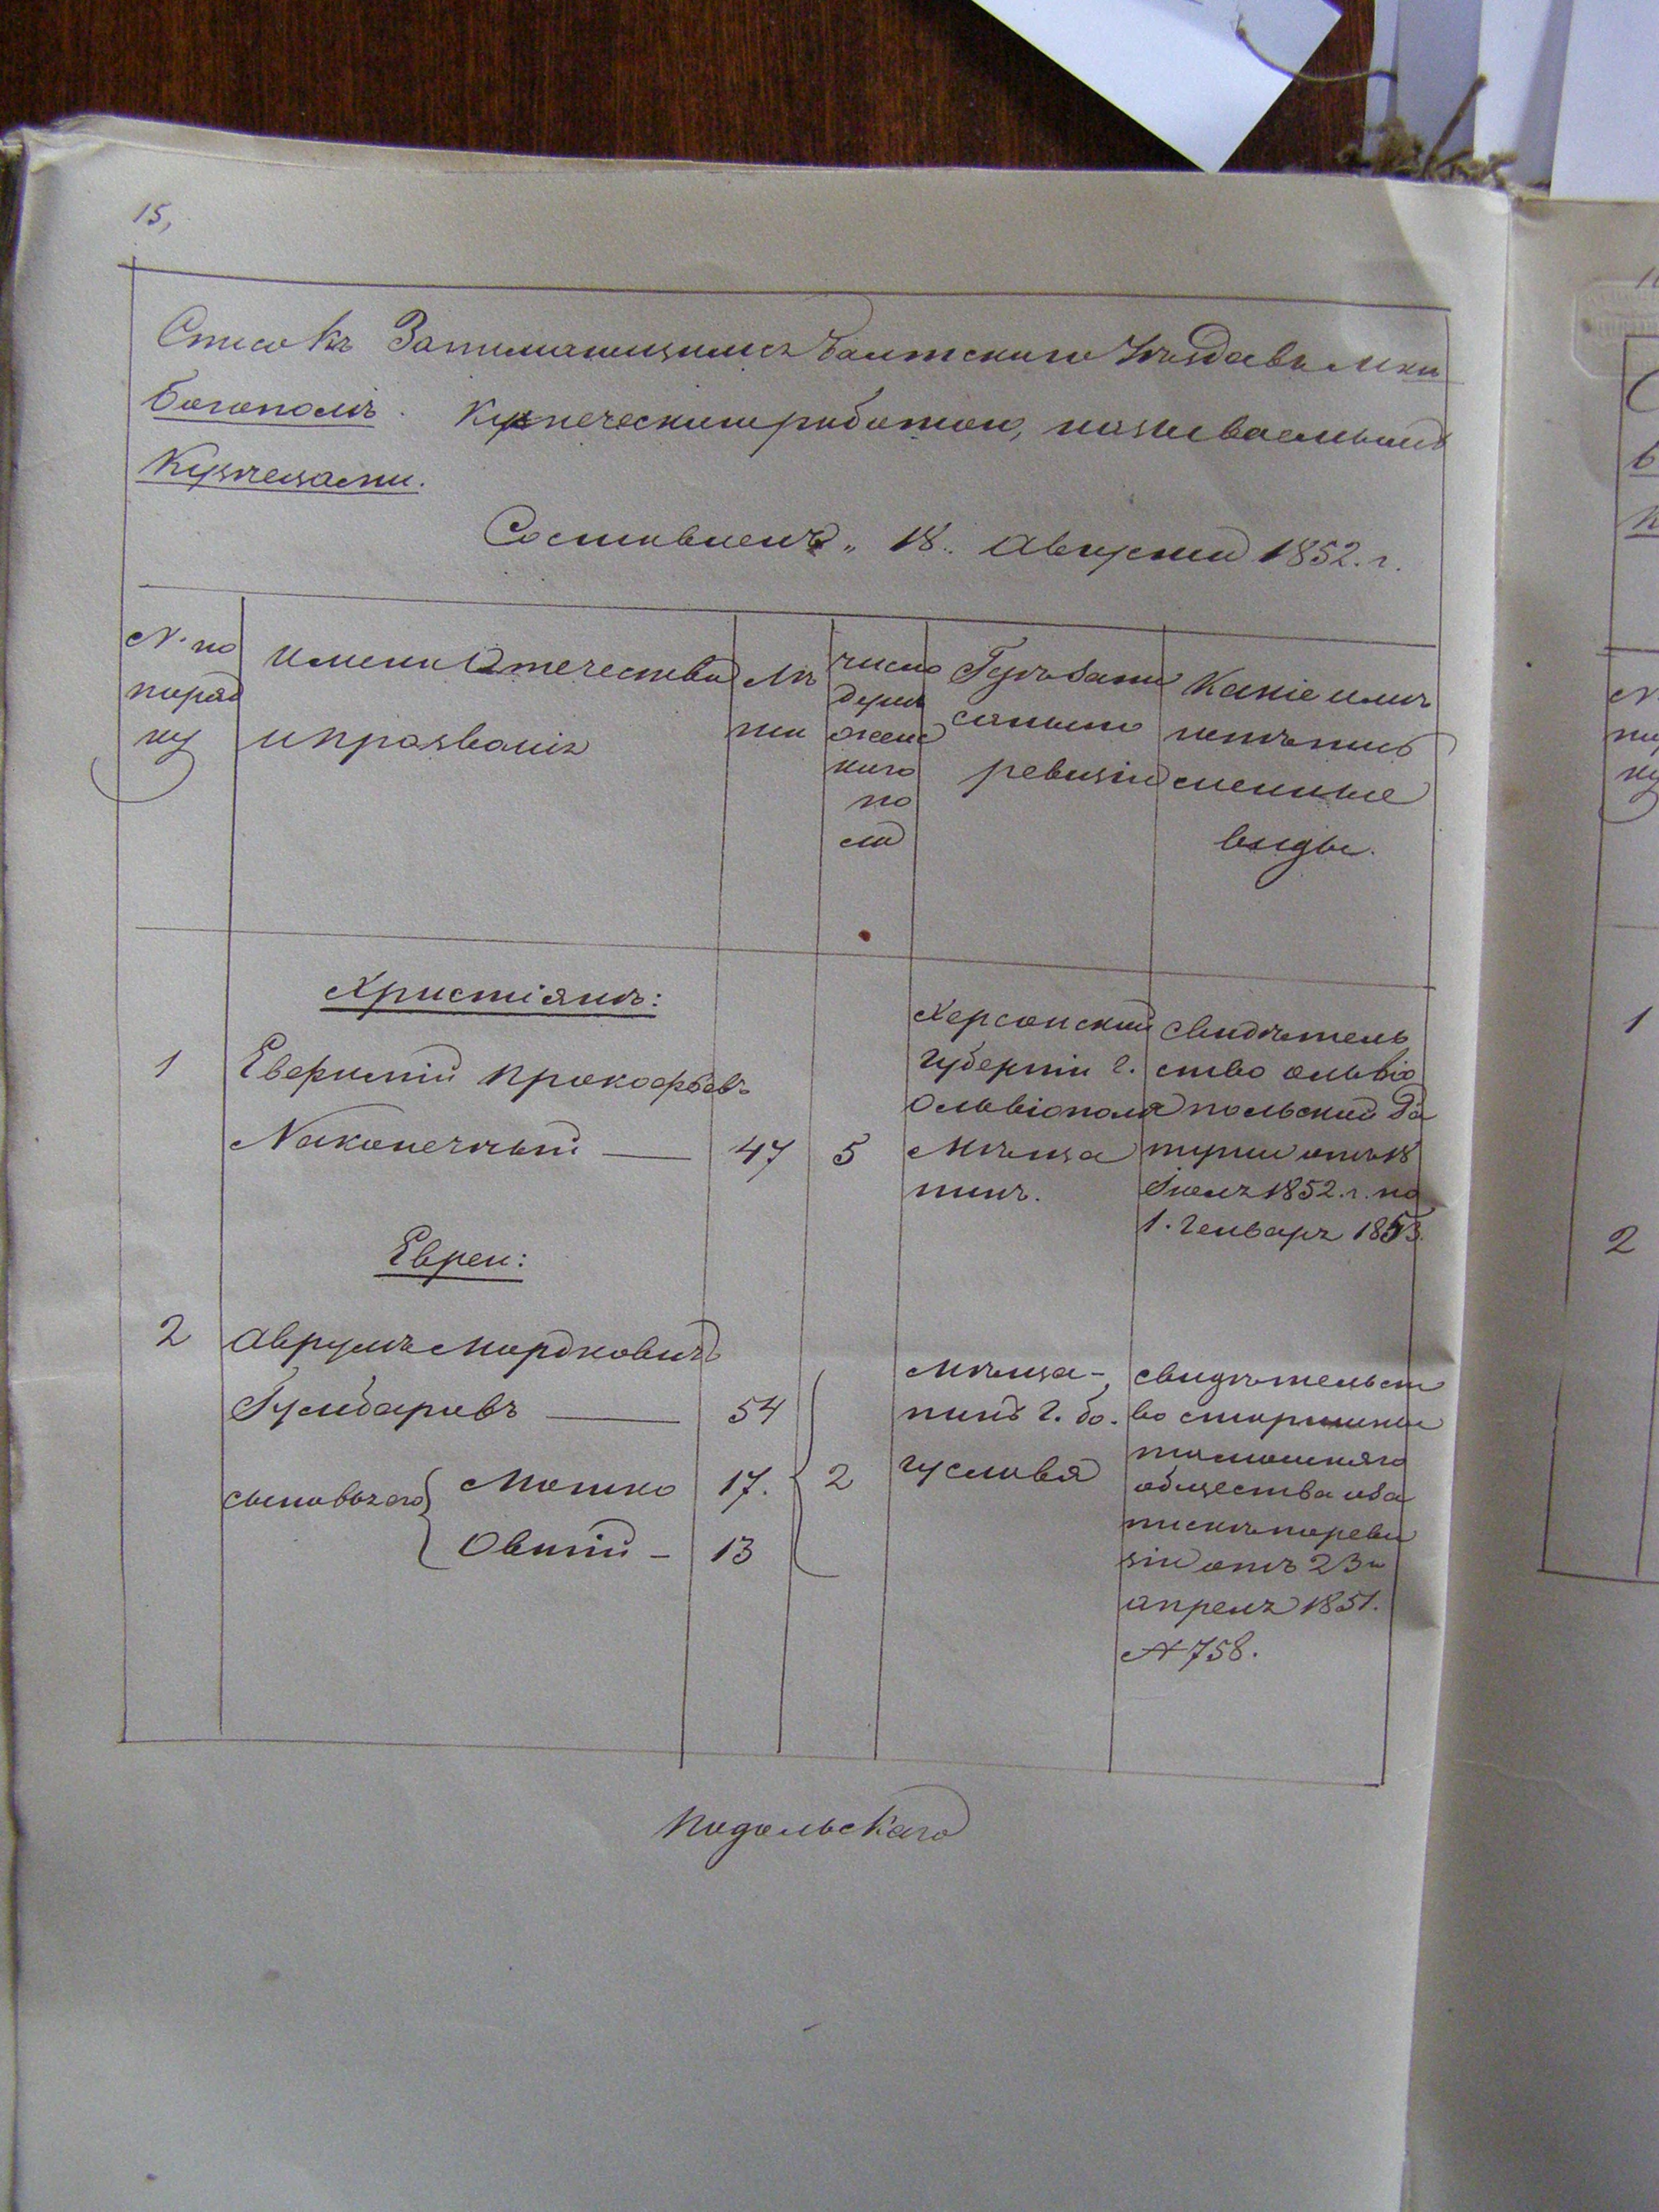 15,
Списокъ Занимающимся Балтскаго Уѣзда въ М-кѣ
Богополѣ. Кузнеческою работою, называемымъ
Кузнецами.
Составленъ „18„ Августа 1852. г.
№ по
поряд
ку
Имена Отечества
и прозванія
Лѣ
та
число
душъ
женс
каго
по
ла
Гдѣ запи
саны по
ревизіи
Какіе имѣ
ютъ пись
менные
виды.
Христіянъ:
1
Евфимій Прокофьевъ
Наконечный — 47
5
Херсонской
Губерніи г.
Ольвіополя
Мѣща
нинъ.
свидѣтель
ство ольвіо
польской Ра
туши отъ 18
Іюля 1852. г. по
1. Генваря 1853.
Евреи:
2
Аврумъ Мордковичъ
Гумбаровъ — 54
сыновья его
Мошко 17.
Овшій - 13
2
Мѣща-
нинъ г. Бо-
гуслава
свидѣтельст
во старшины
тамошняго
общества о за
пискѣ по реви
зіи отъ 23го
апреля 1851.
№ 758.
Подольскаго
1
2